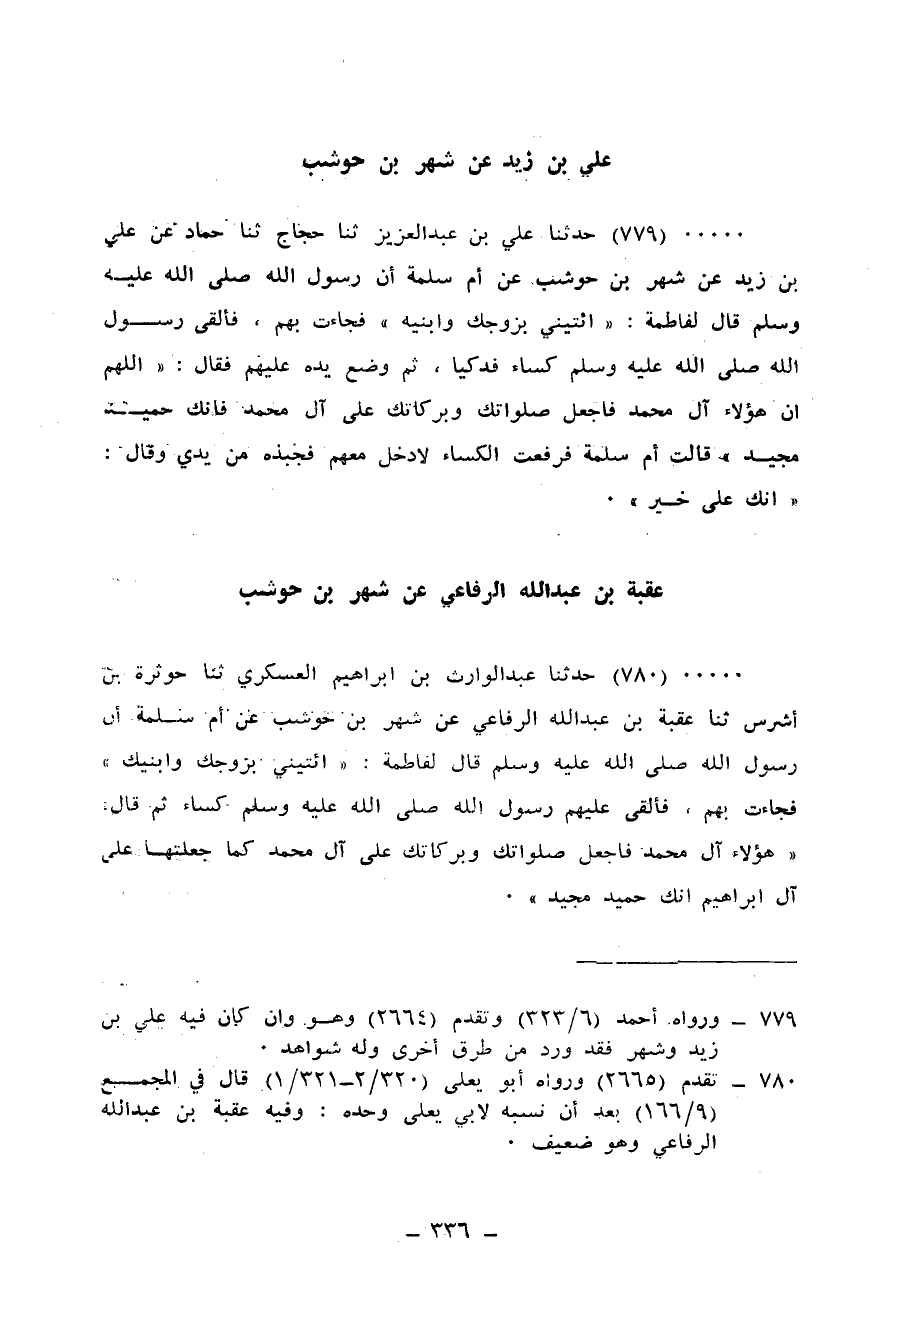 علي بن زيد عن شهر بن حوشب
٠٠٠٠٠ (٧٧٩) حدثنا علي بن عبدالعزيز ثنا حجاج ثنا حماد عن علي
بن زيد عن شهر بن حوشب عن أم سلمة أن رسول الله صلى الله عليه
وسلم قال لفاطمة : « ائتيني بزوجك وابنيه » فجاءت بهم ، فألقى رسول
الله صلى الله عليه وسلم كساء فدكيا ، ثم وضع يده عليهم فقال : « اللهم
ان هؤلاء آل محمد فاجعل صلواتك وبركاتك على آل محمد فانك حميد
مجيد » قالت أم سلمة فرفعت الكساء لادخل معهم فجبذه من يدي وقال :
« انك على خير » ٠
عقبة بن عبدالله الرفاعي عن شهر بن حوشب
٠٠٠٠٠ (٧٨٠) حدثنا عبدالوارث بن ابراهيم العسكري ثنا حوثرة بن
أشرس ثنا عقبة بن عبدالله الرفاعي عن شهر بن حوشب عن أم سلمة أن
رسول الله صلى الله عليه وسلم قال لفاطمة : « ائتيني بزوجك وابنيك »
فجاءت بهم ، فألقى عليهم رسول الله صلى الله عليه وسلم كساء ثم قال :
« هؤلاء آل محمد فاجعل صلواتك وبركاتك على آل محمد كما جعلتها على
آل ابراهيم انك حميد مجيد » ٠
٧٧٩ ــ ورواه أحمد (٣٢٣/٦) وتقدم (٢٦٦٤) وهو وان كان فيه علي بن
زيد وشهر فقد ورد من طرق أخرى وله شواهد ٠
٧٨٠ ــ تقدم (٢٦٦٥) ورواه أبو يعلى (٢/٣٢٠ــ١/٣٢١) قال في المجمع
(١٦٦/٩) بعد أن نسبه لابي يعلى وحده : وفيه عقبة بن عبدالله
الرفاعي وهو ضعيف ٠
ــ ٣٣٦ ــ